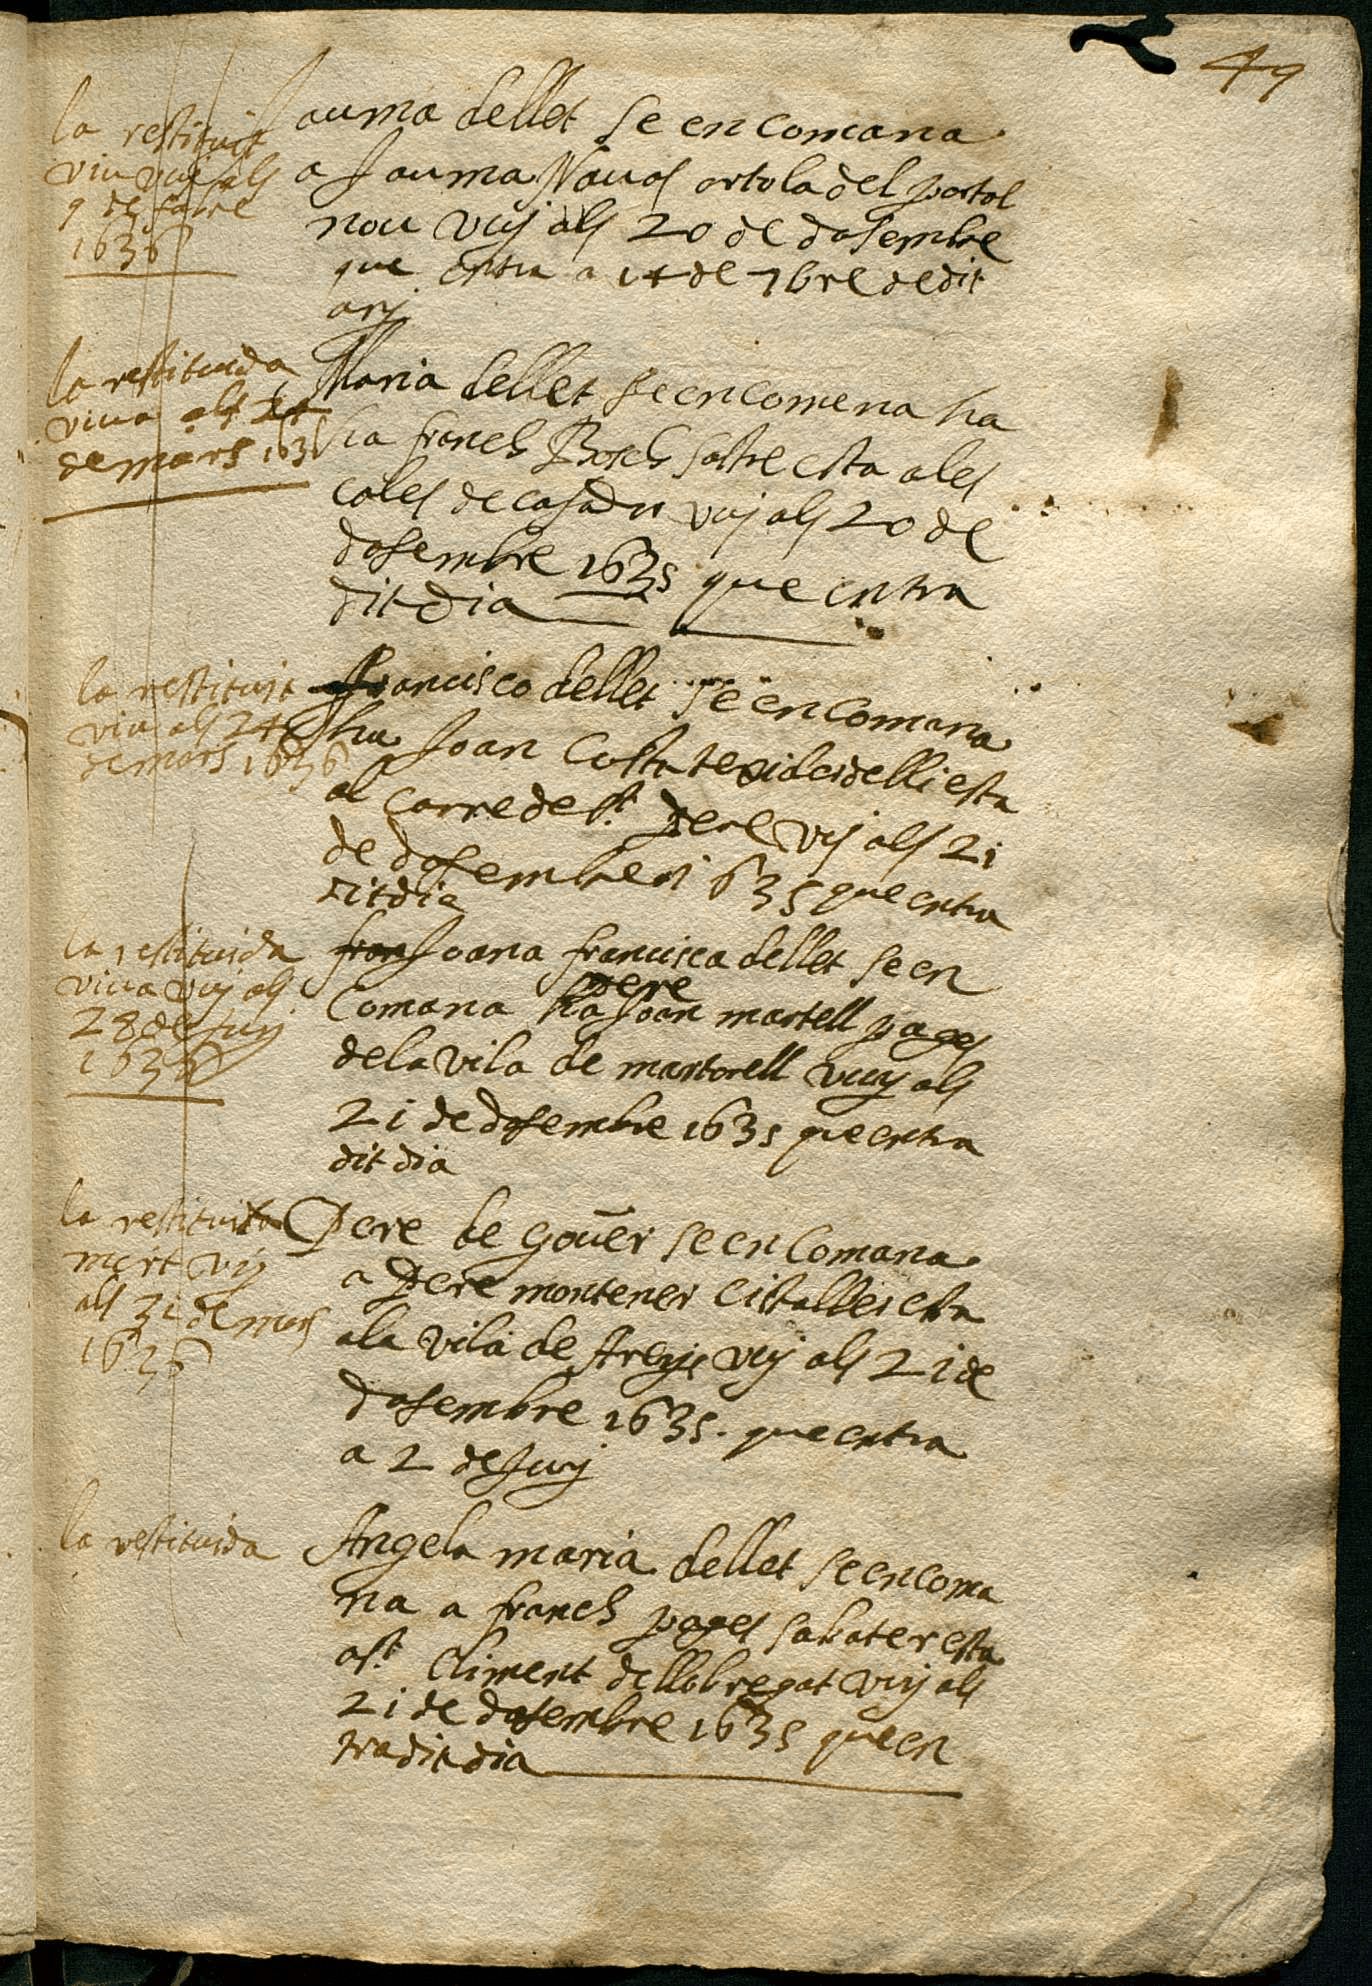 49
la restituit
viu vuy als
9 de fabre
1636
Jauma dellet se en comana
a Jauma Navas ortola del portal
nou vuy als 20 de dasembre
que entra a 14 de 7bre de dit
any
la restituida
viva als 24
de mars 1636
Maria dellet se encomena ha
ha franch Bosch sastre esta a les
cales de vuy als 20 de
dasembre 1635 que entra
dit dia
la restituit
viu als 24
de mars 1636
Francisco dellet se en comana
ha Joan Costa texider de lli esta
al carre de st. Pere vuy als 21
de dasembre 1635 que entra
dit dia
la restituida
viva vuy als
28 de Juny
1636
fran Joana francisca dellet se en
Pere
comana ha Joan martell pages
de la vila de martorell vuy als
21 de dasembre 1635 que entra
dit dia
la restituit
mort vuy
als 31 de mars
1636
Pere de gover se en comana
a Pere montener cistaller esta
a la vila de Arenys vuy als 21 de
dasembre 1635. que entra
a 2 de Juny
la restituida
Angela maria dellet se en coma
na a franch pages sabater esta
a st. Climent de llobregat vuy als
21 de dasembre 1635 que en
tra dit dia